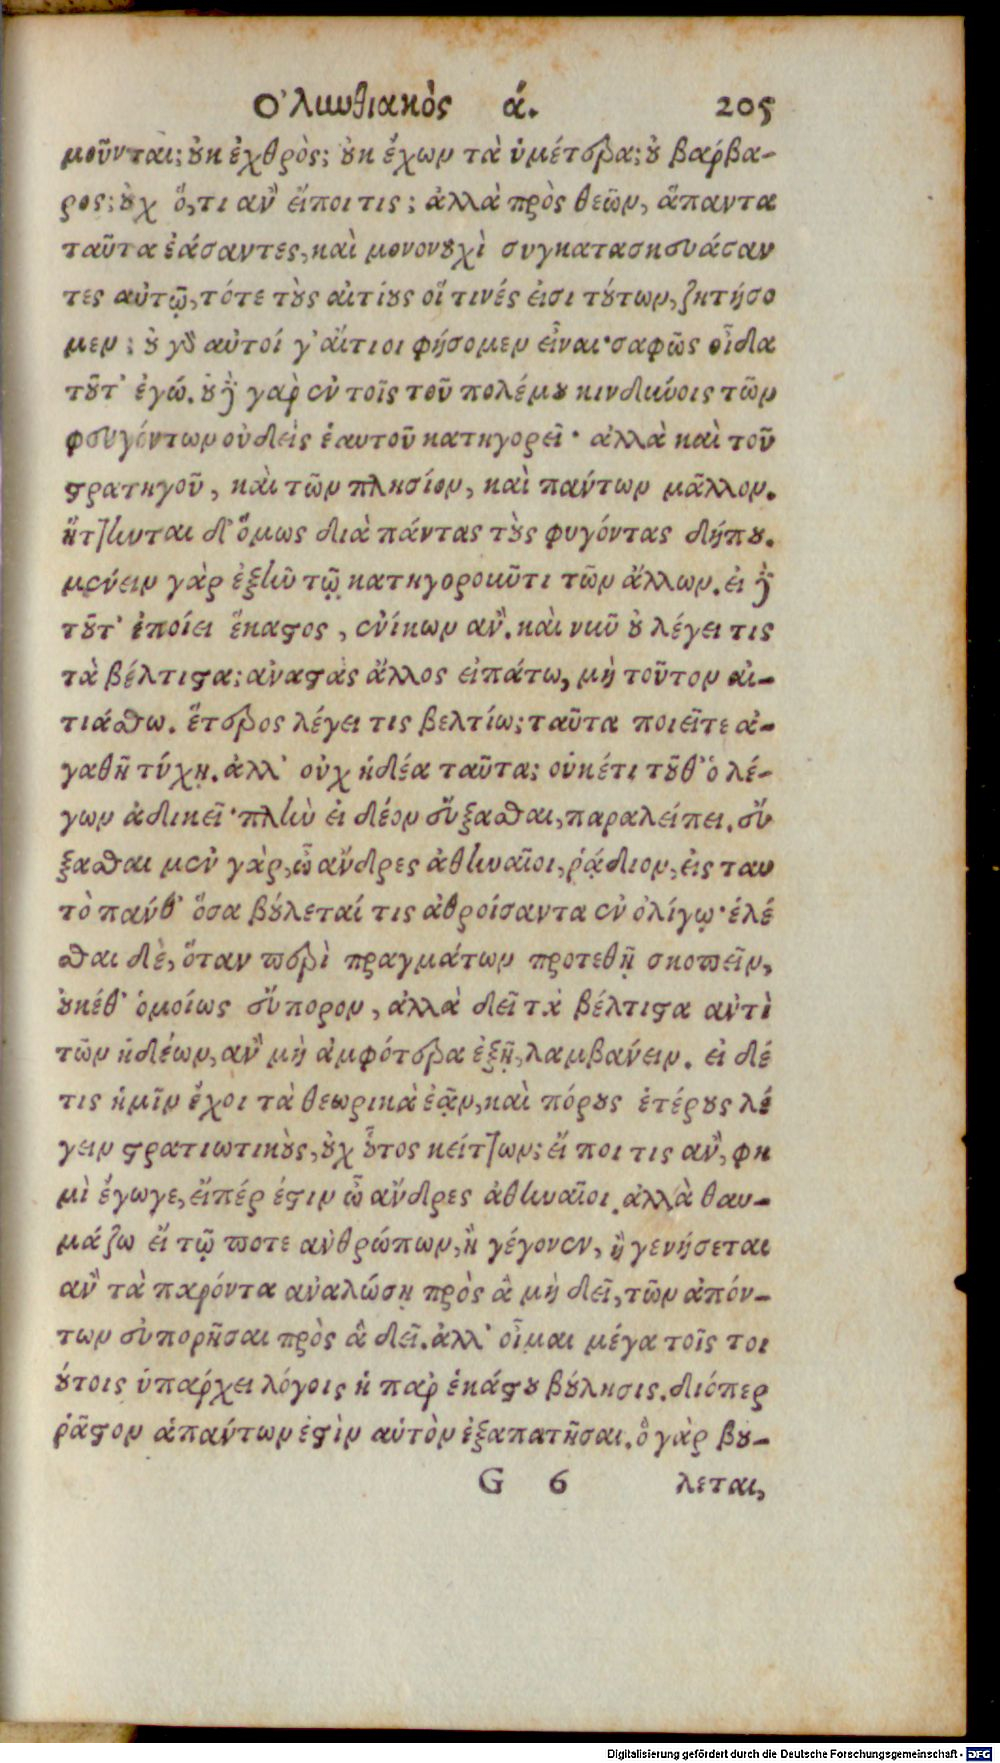 Ὀλυνθιακὸς ά. 205
μοῦνται; οὐκ ἐχθρὸς; οὐκ ἔχων τὰ ὑμέτερα; οὐ βάρβα-
ρος; οὐχ ὅ, τι ἂν εἴποι τις; ἀλλὰ πρὸς θεῶν, ἅπαντα
ταῦτα ἐάσαντες, καὶ μονονουχὶ συγκατασκευάσαν
τες αὐτῷ, τότε τοὺς αἰτίους οἵ τινές εἰσι τούτων, ζητήσο
μεν; οὐ γὰρ αὐτοί γ' αἴτιοι φήσομεν εἶναι· σαφῶς οἶδα
τοῦτ' ἐγώ. οὐδὲ γὰρ ἐν τοῖς τοῦ πολέμου κινδύνοις τῶν
φευγόντων οὐδεὶς ἑαυτοῦ κατηγορεῖ· ἀλλὰ καὶ τοῦ
στρατηγοῦ, καὶ τῶν πλησίον, καὶ πάντων μᾶλλον.
ἥττηνται δ' ὅμως διὰ πάντας τοὺς φυγόντας δήπου.
μένειν γὰρ ἐξῆν τῷ κατηγοροῦντι τῶν ἄλλων. εἰ δὲ
τοῦτ' ἐποίει ἕκαστος, ἐνίκων ἄν. καὶ νῦν οὐ λέγει τις
τὰ βέλτιστα; ἀναστὰς ἄλλος εἰπάτω, μὴ τοῦτον αἰ-
τιάσθω. ἕτερος λέγει τις βελτίω; ταῦτα ποιεῖτε ἀ-
γαθῇ τύχῃ. ἀλλ' οὐχ ἡδέα ταῦτα; οὐκέτι τοῦθ' ὁ λέ-
γων ἀδικεῖ· πλὴν εἰ δέον εὔξασθαι, παραλείπει. εὔ
ξασθαι μὲν γὰρ, ὦ ἄνδρες ἀθηναῖοι, ῥᾴδιον, εἰς ταυ
τὸ πάνθ' ὅσα βούλεταί τις ἀθροίσαντα ἐν ὀλίγῳ· ἑλέ
σθαι δὲ, ὅταν περὶ πραγμάτων προτεθῇ σκοπεῖν,
οὐκέθ' ὁμοίως εὔπορον, ἀλλὰ δεῖ τὰ βέλτιστα ἀντὶ
τῶν ἡδέων, ἂν μὴ ἀμφότερα ἐξῇ, λαμβάνειν. εἰ δέ
τις ἡμῖν ἔχοι τὰ θεωρικὰ ἐᾷν, καὶ πόρους ἑτέρους λέ
γειν στρατιωτικοὺς, οὐχ οὗτος κείττων; εἴ ποι τις ἂν, φη
μὶ ἔγωγε, εἴπέρ ἐστιν ὦ ἄνδρες ἀθηναῖοι. ἀλλὰ θαυ-
μάζω εἴ τῷ ποτε ἀνθρώπων, ἢ γέγονεν, ἢ γενήσεται
ἂν τὰ παρόντα ἀναλώσῃ πρὸς ἃ μὴ δεῖ, τῶν ἀπόν-
των εὐπορῆσαι πρὸς ἃ δεῖ. ἀλλ' οἶμαι μέγα τοῖς τοι
ούτοις ὑπάρχει λόγοις ἡ παρ' ἑκάστου βούλησις. διόπερ
ῥᾷστον ἁπάντων ἐστὶν αὑτὸν ἐξαπατῆσαι. ὃ γὰρ βού-
G 6 λεται,
Digitalisierung gefördert durch die Deutsche Forschungsgemeinschaft - DFG